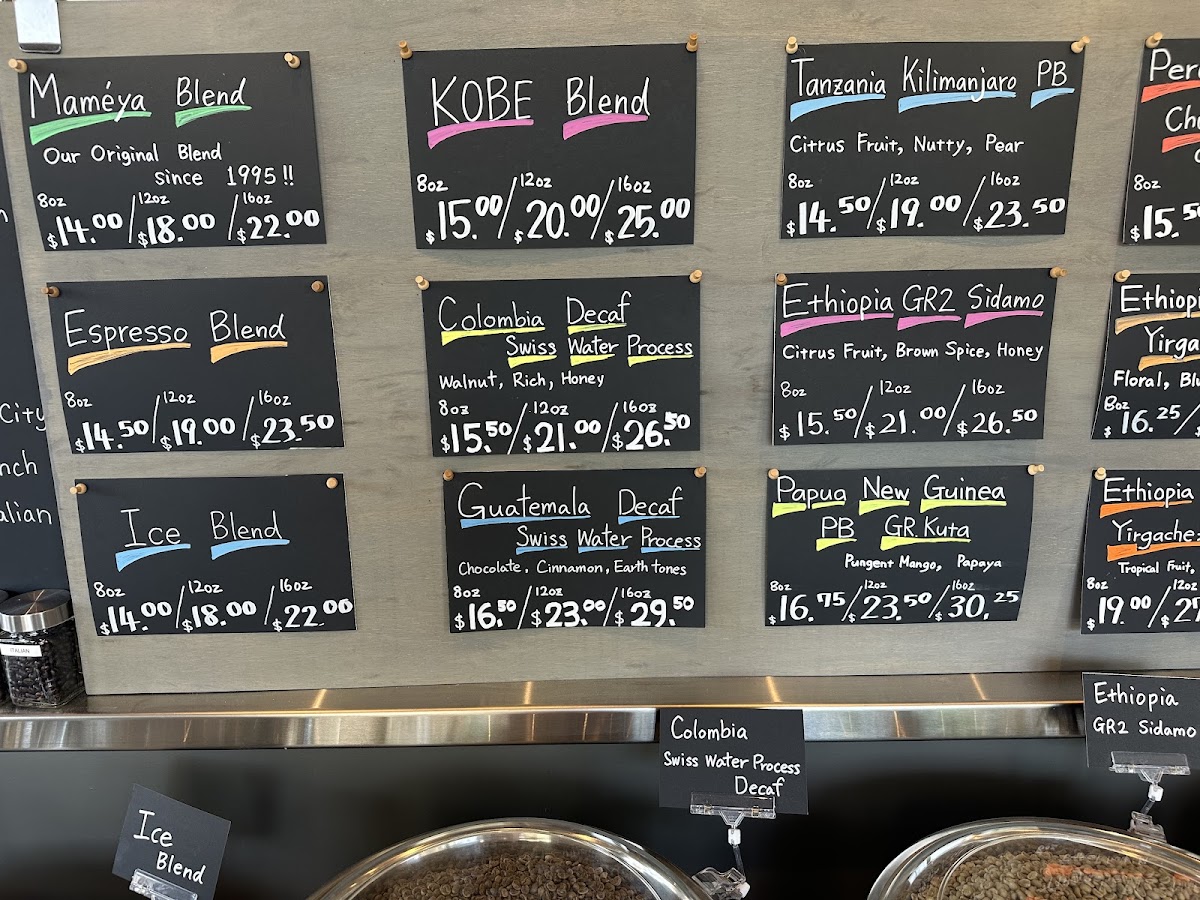 Maméya Blend
Our Original Blend
since 1995!!
8oz 12oz 16oz
$14.00/$18.00/$22.00
KOBE Blend
8oz 12oz 16oz
$15.00/$20.00/$25.00
Tanzania Kilimanjaro PB
Citrus Fruit, Nutty, Pear
8oz 12oz 16oz
$14.50/$19.00/$23.50
8oz
$15.5
Espresso Blend
8oz 12oz 16oz
$14.50/$19.00/$23.50
Colombia Decaf
Swiss Water Process
Walnut, Rich, Honey
8oz 12oz 16oz
$15.50/$21.00/$26.50
Ethiopia GR2 Sidamo
Citrus Fruit, Brown Spice, Honey
8oz 12oz 16oz
$15.50/$21.00/$26.50
Ethiop
Yirga
Floral, Blu
8oz
$16.25/
Ice Blend
8oz 12oz 16oz
$14.00/$18.00/$22.00
Guatemala Decaf
Swiss Water Process
Chocolate, Cinnamon, Earth tones
8oz 12oz 16oz
$16.50/$23.00/$29.50
Papua New Guinea
PB GR.Kuta
Pungent Mango, Papaya
8oz 12oz 16oz
$16.75/$23.50/$30.25
Ethiopia
Yirgache
Tropical Fruit,
8oz 12oz
$19.00/
City
nch
alian
ITALIAN
Ice
Blend
Colombia
Swiss Water Process
Decaf
Ethiopia
GR2 Sidamo